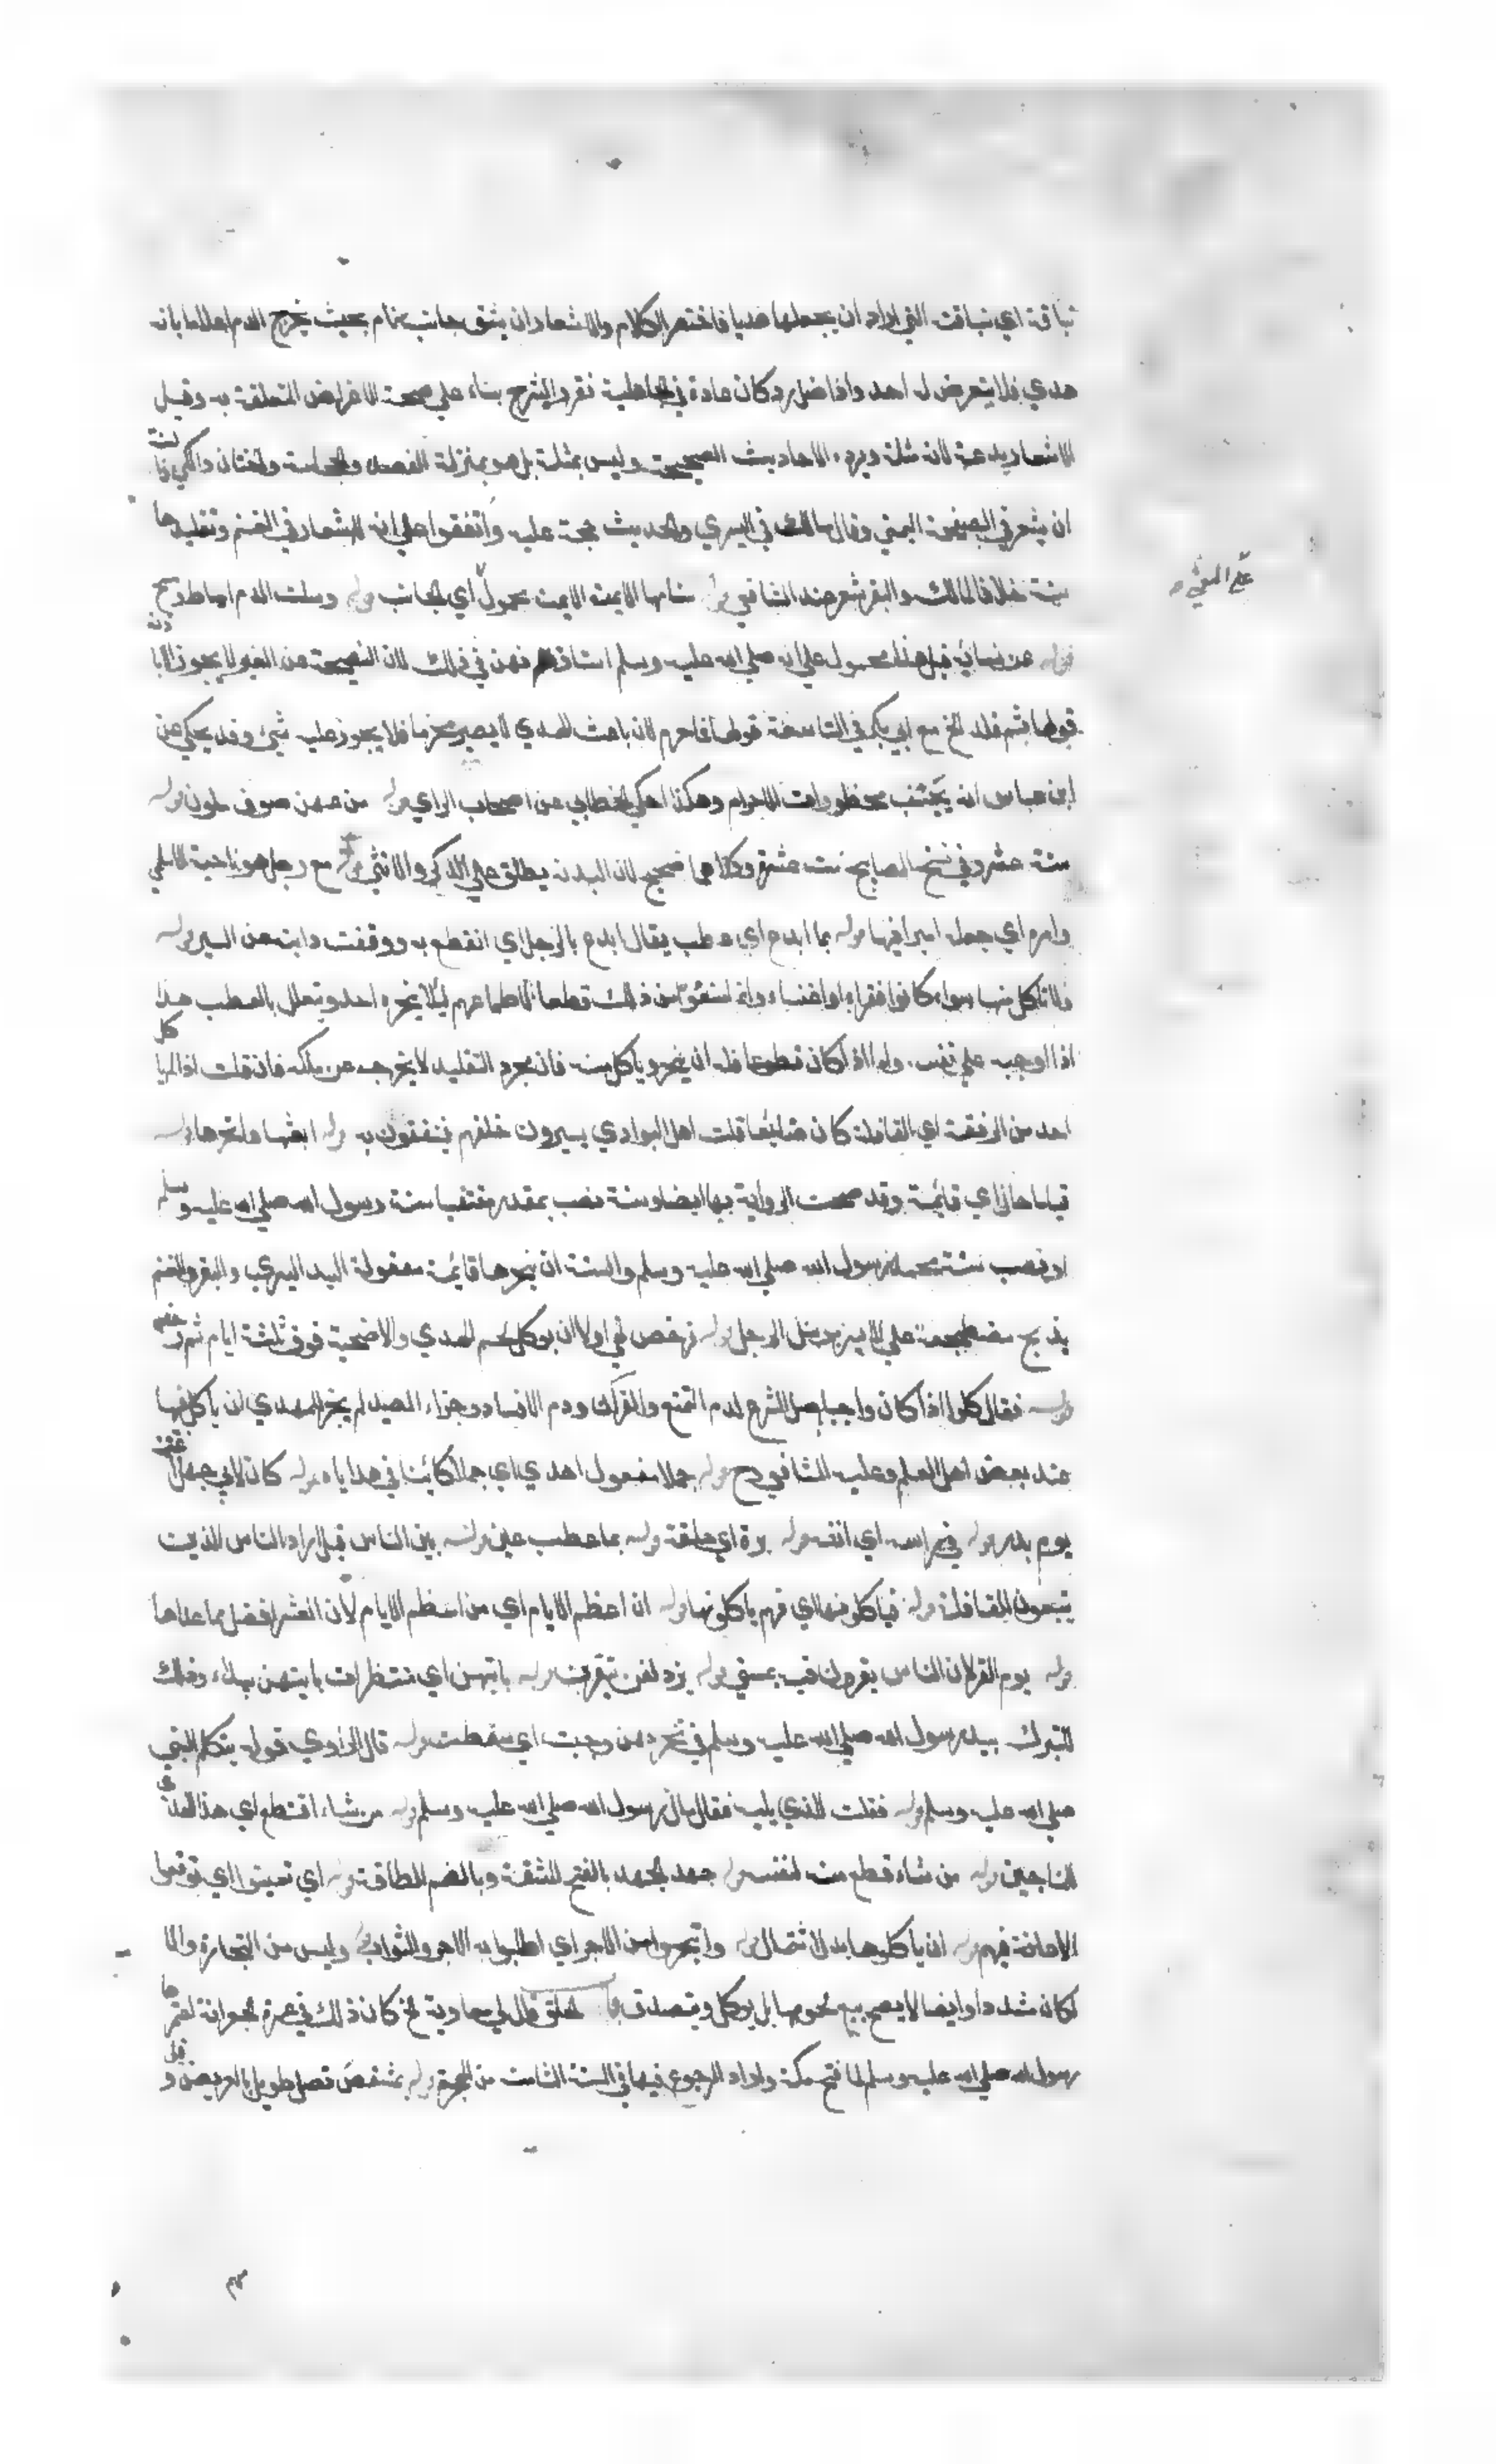 بناقة اي بناقته التي اراد ان يجعلها هديا فاختصر الكلام والاشعار ان يشق جانب سنام بحيث يخرج الدم اعلاما بانه
هدي فلا يتعرض له احد واذا ضل رد كان عادة في الجاهلية فقرره الشرع بناء على صحة الاغراض المتعلقة به وقيل
الاشعار بدعة لانه مثلة ويرده الاحاديث الصحيحة وليس بمثلة بل هو بمنزلة الفصد والحجامة والختان والكي
ان يشعر في الصفحة اليمنى وقال مالك في اليسرى والحديث حجة عليه واتفقوا على انه لا اشعار في الغنم وتقليدها
سنة خلافا لمالك والبقر يشعر عند الشافعي قوله سنامها الايمن الايمن محمول اي الجانب قوله وسلت الدم اماطه
قوله عن نسائه قيل هذا محمول على انه صلى الله عليه وسلم استاذنهن في ذلك لان التضحية عن الغير لا يجوز الا باذنه
قولها بثم قلد الخ مع ابي بكر في التاسعة قولها فاحرم لان باعث الهدي لا يصير محرما فلا يجوز عليه شيء وقد يحكى عن
ابن عباس انه يجتنب محظورات الاحرام وهكذا حكى الخطابي عن اصحاب الراي قوله من عهن صوف ملون قوله
ستة عشر وفي نسخ المصابيح ست عشرة وكلاهما صحيح لان البدنة يطلق على الذكر والانثى قوله مع رجل هو ناجية الاسلمي
وامره اي جعله اميرا فيها قوله بما ابدع اي عطب يقال ابدع بالرجل اي انقطع به ووقفت دابته عن السير قوله
ولا تاكل منها سواء كانوا فقراء او اغنياء وانما منعوا من ذلك قطعا لاطماعهم لئلا ينحره احد ويتعلل بالعطب هذا
اذا اوجبه على نفسه واما اذا كان تطوعا فله ان ينحر وياكل منه فان مجرد التقليد لا يخرجه عن ملكه فان قلت اذا لم ياكل
احد من الرفقة اي القافلة كان ضايعا قلت اهل البوادي يسيرون خلفهم فينتفعون به قوله ابعثها وانحرها قوله
قياما حال اي قائمة وقد صحت الرواية بها ايضا وسنة نصب بمقدر مقتفيا سنة رسول الله صلى الله عليه وسلم
او نصب سنة محمد رسول الله صلى الله عليه وسلم والسنة ان ينحرها قائمة معقولة اليد اليسرى والبقر والغنم
يذبح مضطجعة على الايسر مرسل الرجل قوله رخص نهي اولا ان يوكل لحم الهدي والاضحية فوق ثلثة ايام ثم رخص
قوله فقال كلوا اذا كان واجبا باصل الشرع لدم التمتع والقران ودم الافساد وجزاء الصيد لم يجز للمهدي ان ياكل منها
عند بعض اهل العلم وعليه الشافعي رح قوله جملا مفعول اهدى اي جملا كائنا في هداياه قوله كان لابي جهل
يوم بدر قوله في راسه اي انفه قوله برة اي حلقة قوله بما عطب عين قوله بين الناس قيل اراد الناس الذين
يتبعون القافلة قوله فياكلونها اي فهم ياكلونها قوله ان اعظم الايام اي من اعظم الايام لان العشر افضل مما عداها
قوله يوم القر لان الناس يقرون فيه بمنى قوله يزدلفن يتقربن قوله بايتهن اي منتظرات بايتهن يبداء وذلك
للتبرك بيد رسول الله صلى الله عليه وسلم في نحرهن وجبت اي سقطت قوله قال الراوي قوله يتكلم النبي
صلى الله عليه وسلم قوله فقلت للذي يليه فقال قال رسول الله صلى الله عليه وسلم قوله من شاء اقتطع اي هذا الهدي
للمحتاجين قوله من شاء قطع منه لنفسه قوله جهد الجهد بالفتح المشقة وبالضم الطاقة قوله اي تعينوا اي توقعوا
الاعانة فيهم قوله ان ياكلوها بدل اشتمال قوله واتجروا من الاجر اي اطلبوا به الاجر والثواب وليس من التجارة والا
لكان مشددا وايضا لا يصح بيع لحومها بل يوكل ويتصدق به الحلق قال لي معاوية الخ كان ذلك في عمرة الجعرانة اعتمرها
رسول الله صلى الله عليه وسلم لما فتح مكة واراد الرجوع فيها في السنة الثامنة من الهجرة قوله بمشقص نصل طويل ليس بالعريض وقيل